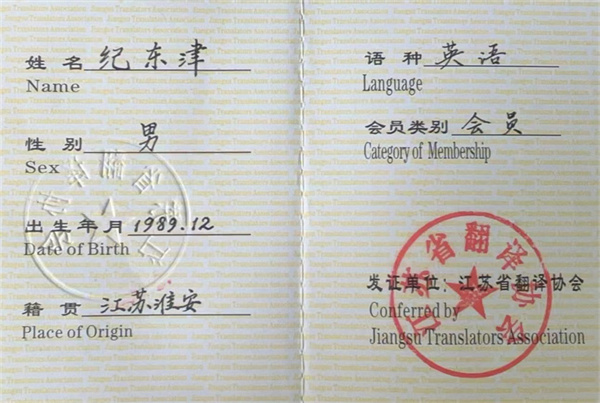 姓名 纪东津
Name
性别 男
Sex
出生年月 1989.12
Date of Birth
籍贯 江苏淮安
Place of Origin
语种 英语
Language
会员类别 会员
Category of Membership
发证单位：江苏省翻译协会
Conferred by
Jiangsu Translators Association
江苏省翻译协会